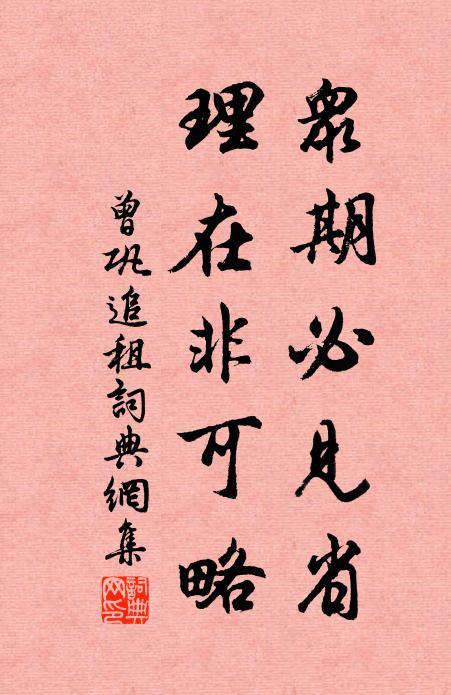 眾期必見省
理在非可略
曾巩追租詞典網集
詞典网印